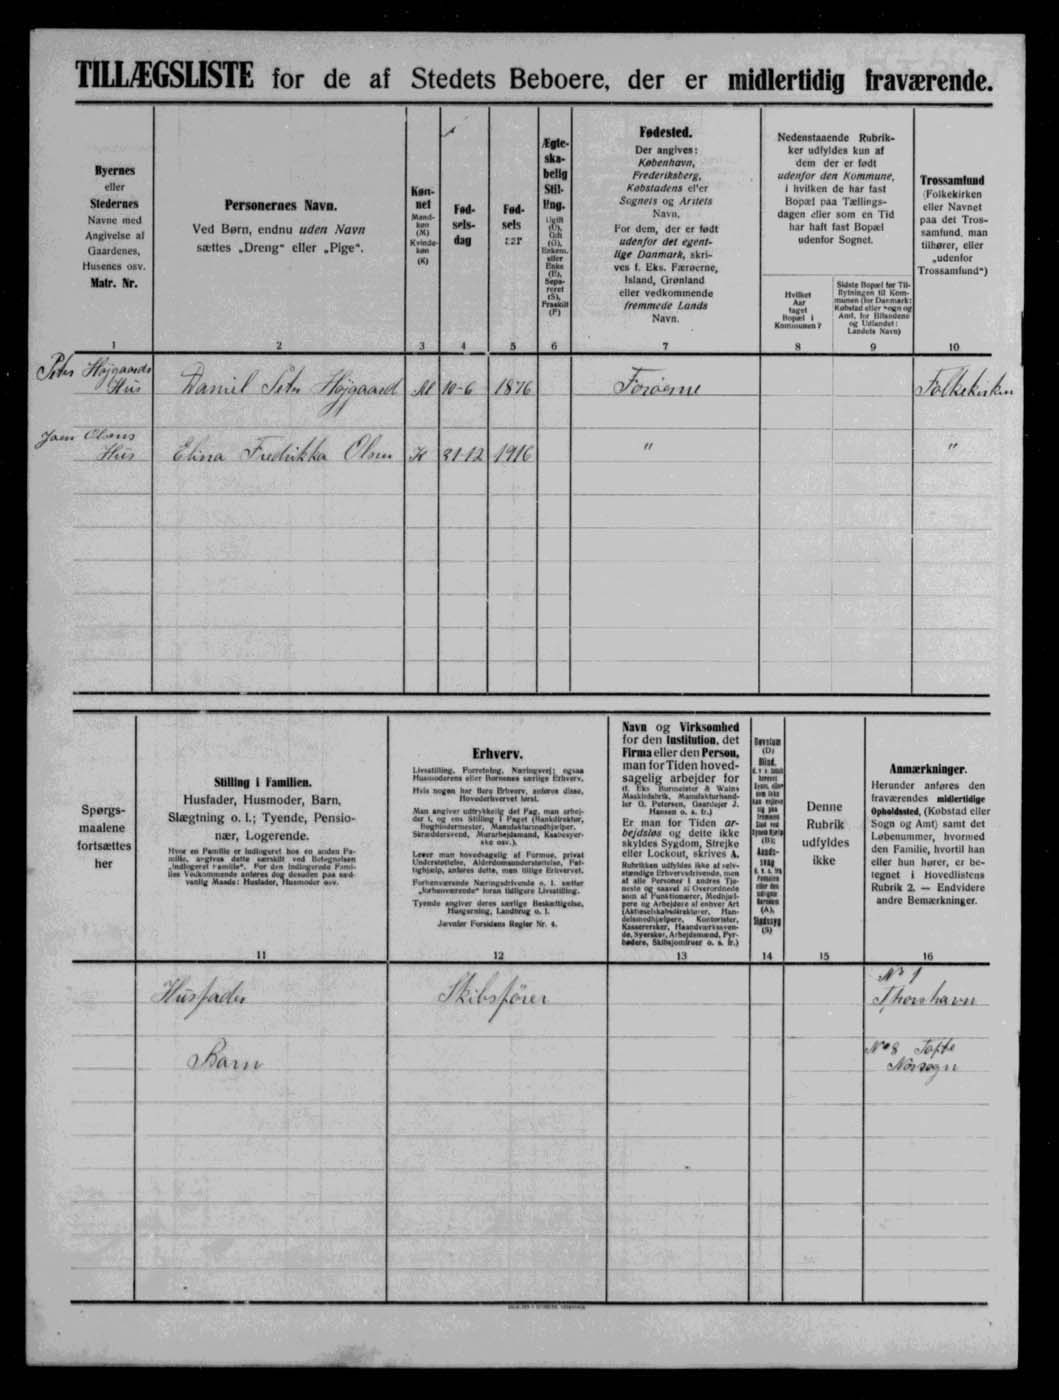 TILLÆGSLISTE for de af Stedets Beboere, der er midlertidig fraværende.
Byernes
eller
Stedernes
Navne med
Angivelse af
Gaardenes,
Husenes osv.
Matr. Nr.
1
Personernes Navn.
Ved Børn, endnu uden Navn
sættes „Dreng“ eller „Pige“.
2
Køn-
net
Mand-
køn
(M)
Kvinde-
køn
(K)
3
Fød-
sels-
dag
4
Fød-
sels
5
Ægte-
ska-
belig
Stil-
ling.
Ugift
(U),
Gift
(G),
Enkem.
eller
Enke
(E),
Sepa-
reret
(S),
Fraskilt
(F)
6
Fødested.
Der angives:
København,
Frederiksberg,
Købstadens eller
Sognets og Amtets
Navn.
For dem, der er født
udenfor det egent-
lige Danmark, skri-
ves f. Eks. Færøerne,
Island, Grønland
eller vedkommende
fremmede Lands
Navn.
7
Nedenstaaende Rubrik-
ker udfyldes kun af
dem der er født
udenfor den Kommune,
i hvilken de har fast
Bopæl paa Tællings-
dagen eller som en Tid
har haft fast Bopæl
udenfor Sognet.
Hvilket
Aar
taget
Bopæl i
Kommunen?
8
Sidste Bopæl før Til-
flytningen til Kom-
munen (for Danmark:
Købstad eller Sogn og
Amt, for Bilandene
og Udlandet:
Landets Navn)
9
Trossamfund
(Folkekirken
eller Navnet
paa det Tros-
samfund, man
tilhører, eller
„udenfor
Trossamfund“)
10
Peter Højgaards
Hus Daniel Peter Højgaard M 10-6 1876 Færøerne Folkekirken
Joen Olsens
Hus Elina Fredrikka Olsen K 31-12 1916 " "
Spørgs-
maalene
fortsættes
her
Stilling i Familien.
Husfader, Husmoder, Barn,
Slægtning o. l.; Tyende, Pensio-
nær, Logerende.
Hvor en Familie er indlogeret hos en anden Fa-
milie, angives dette særskilt ved Betegnelsen
„indlogeret Familie“. For den indlogerede Fami-
lies Vedkommende anføres dog desuden paa sæd-
vanlig Maade: Husfader, Husmoder osv.
11
Erhverv.
Livsstilling, Forretning, Næringsvej; ogsaa
Husmoderens eller Børnenes særlige Erhverv.
Hvis nogen har flere Erhverv, anføres disse,
Hovederhvervet først.
Man angiver udtrykkelig det Fag, man arbej-
der i, og ens Stilling i Faget (Bankdirektør,
Bogbindermester, Manufakturmedhjælper,
Skræddersvend, Murarbejdsmand, Kaabesyer-
ske osv.).
Lever man hovedsagelig af Formue, privat
Understøttelse, Alderdomsunderstøttelse, Fat-
tighjælp, anføres dette, men tillige Erhvervet.
Forhenværende Næringsdrivende o. l. sætter
„forhenværende“ foran tidligere Livsstilling.
Tyende angiver deres særlige Beskæftigelse,
Husgerning, Landbrug o. l.
Jævnfør Forsidens Regler Nr. 4.
12
Navn og Virksomhed
for den Institution, det
Firma eller den Person,
man for Tiden hoved-
sagelig arbejder for
(f. Eks Burmeister & Wains
Maskinfabrik, Manufakturhand-
ler G. Petersen, Gaardejer J.
Hansen o. s. fr.)
Er man for Tiden ar-
bejdsløs og dette ikke
skyldes Sygdom, Strejke
eller Lockout, skrives A.
Rubrikken udfyldes ikke af selv-
stændige Erhvervsdrivende, men
af alle Personer i andres Tje-
neste og saavel af Overordnede
som af Funktionærer, Medhjæl-
pere og Arbejdere af enhver Art
(Aktieselskabsdirektører, Han-
delsmedhjælpere, Kontorister,
Kasserersker, Haandværkssven-
de, Syersker, Arbejdsmænd, Fyr-
bødere, Skibsjomfruer o. s. fr.)
13
Døvstum
(D)
Blind,
(B);
Aands-
svag
(A),
Sindssyg
(S)
14
Denne
Rubrik
udfyldes
ikke
15
Anmærkninger.
Herunder anføres den
fraværendes midlertidige
Opholdssted, (Købstad eller
Sogn og Amt) samt det
Løbenummer, hvormed
den Familie, hvortil han
eller hun hører, er be-
tegnet i Hovedlistens
Rubrik 2. — Endvidere
andre Bemærkninger.
16
No 1
Husfader Skibsfører Thorshavn
No 8
Barn